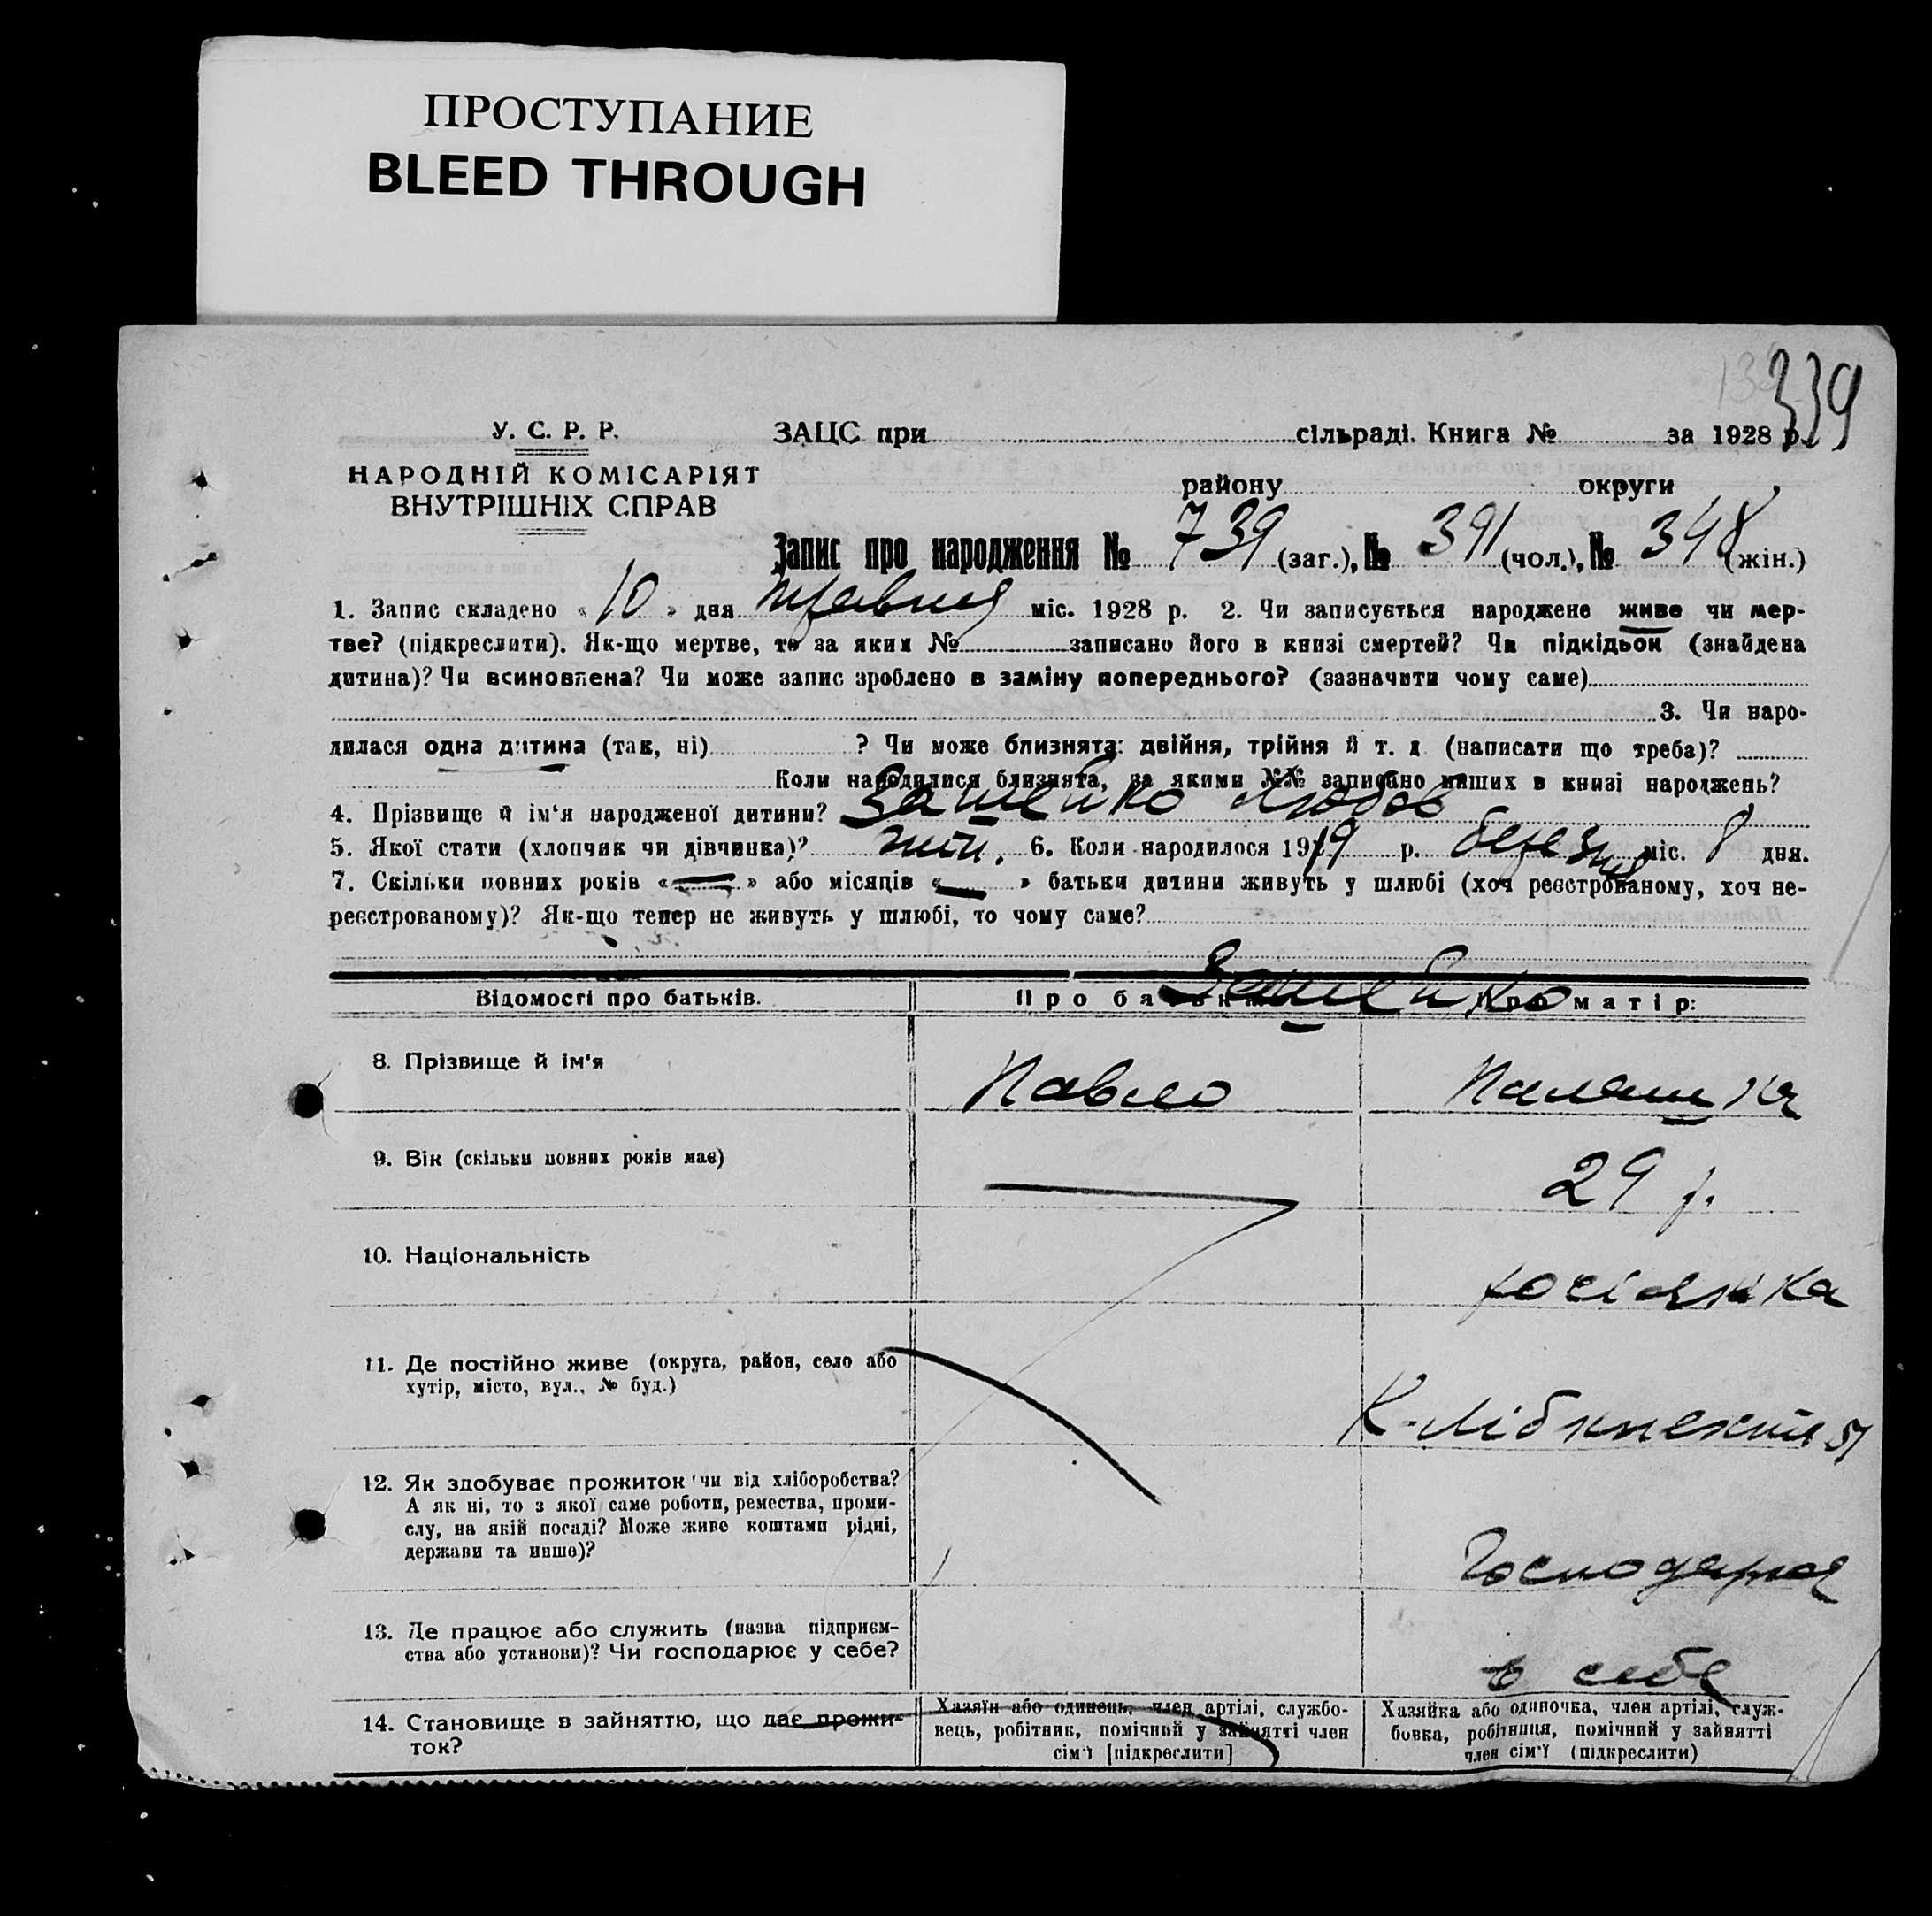 ПРОСТУПАНИЕ
BLEED THROUGH
339
У. С. Р. Р.
НАРОДНІЙ КОМІСАРІЯТ
ВНУТРІШНІХ СПРАВ
ЗАЦС при сільраді. Книга № за 1928 р.
району округи
Запис про народження № 739 (заг.), № 391 (чол.), № 348 (жін.)
1. Запис складено « 10 » дня травня міс. 1928 р. 2. Чи записується народжене живе чи мер-
тве? (підкреслити). Як-що мертве, то за яким № записано його в книзі смертей? Чи підкідьок (знайдена
дитина)? Чи всиновлена? Чи може запис зроблено в заміну попереднього? (зазначити чому саме)
3. Чи наро-
дилася одна дитина (так, ні) ? Чи може близнята: двійня, трійня й т. д (написати що треба)?
Коли народилися близнята, за якими №№ записано инших в книзі народжень?
4. Прізвище й ім'я народженої дитини? Зашейко Любов
5. Якої стати (хлопчик чи дівчинка)? жін. 6. Коли народилося 1919 р. березня міс. 8 дня.
7. Скільки повних років « » або місяців « » батьки дитини живуть у шлюбі (хоч реєстрованому, хоч не-
реєстрованому)? Як-що тепер не живуть у шлюбі, то чому саме?
Зашейко
Відомості про батьків. Про батька Про матір:
8. Прізвище й ім'я Павло Палашка
9. Вік (скільки повних років має) 29 р.
10. Національність росіянка
11. Де постійно живе (округа, район, село або
хутір, місто, вул., № буд.) К-Лібкнехта 51
12. Як здобуває прожиток (чи від хліборобства?
А як ні, то з якої саме роботи, ремества, проми-
слу, на якій посаді? Може живе коштами рідні,
держави та инше)? Господарює
13. Де працює або служить (назва підприєм-
ства або установи)? Чи господарює у себе? в себе
14. Становище в зайняттю, що дає прожи-
ток?
Хазяїн або одинець, член артілі, службо-
вець, робітник, помічний у зайнятті член
сім'ї [підкреслити]
Хазяйка або одиночка, член артілі, служ-
бовка, робітниця, помічний у зайнятті
член сім'ї (підкреслити)